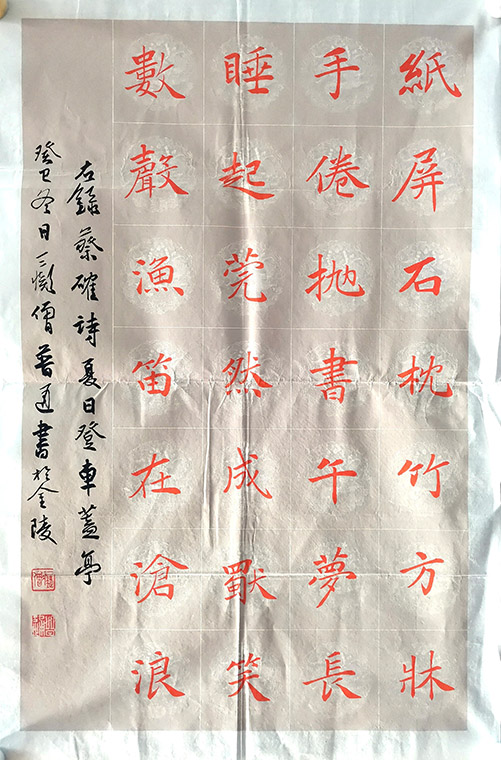 紙屏石枕竹方牀
手倦抛書午夢長
睡起莞然成獸笑
數聲漁笛在滄浪
右錄蔡確詩夏日登車蓋亭
癸巳冬日三癡僧普通書於金陵